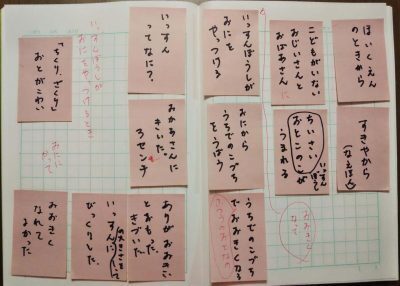 ほいくえん
のときから
すきやから
（なえほん）
こどもがいない
おじいさんと
おばあさんに
ちいさい
おとこのこが
うまれる
いっすんぼうしが
おにを
やっつける
おにから
うちでのこづち
をうばう
うちでのこづち
でおおきくなる
いっすん
ってなに？
おかあさんに
きいた。
３センチ
ありがおおきい
とおもった
きづいた
いっすんぼうしが
おにをやっつけるとき
「ちくり、ざくり」
おとがこわい
いっすんに
びっくりした。
おにに
かって
おおきく
なれて
よかった